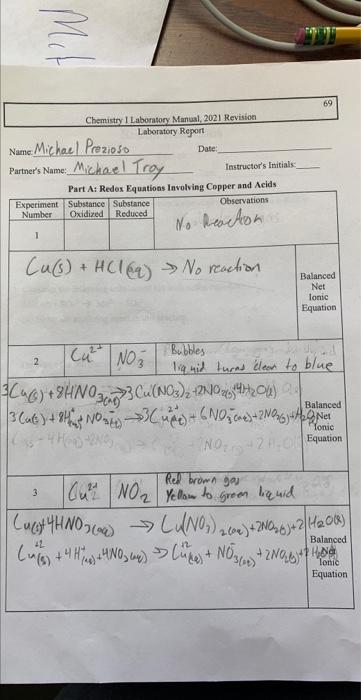 Mit
69
Chemistry I Laboratory Manual, 2021 Revision
Laboratory Report
Name: Michael Prezioso Date:
Partner's Name: Michael Troy Instructor's Initials:
Part A: Redox Equations Involving Copper and Acids
Experiment Number Substance Oxidized Substance Reduced Observations
1 No Reaction
Cu(s) + HCl(aq) → No reaction
Balanced Net Ionic Equation
2 Cu²⁺ NO₃⁻ Bubbles
liquid turns clear to blue
3Cu(s) + 8HNO₃(aq) → 3Cu(NO₃)₂ + 2NO(g) + 4H₂O(l)
3Cu(s) + 8H⁺(aq) + NO₃⁻ → 3Cu²⁺(aq) + 6NO₃⁻(aq) + 2NO(g) + H₂O
Balanced Net Ionic Equation
3 Cu²⁺ NO₂ Red brown gas
Yellow to green liquid
Cu(s) + 4HNO₃(aq) → Cu(NO₃)₂(aq) + 2NO₂(g) + 2H₂O(l)
Cu(s) + 4H⁺(aq) + 4NO₃(aq) → Cu⁺²(aq) + NO₃⁻(aq) + 2NO₂(g) + 2H₂O
Balanced Net Ionic Equation